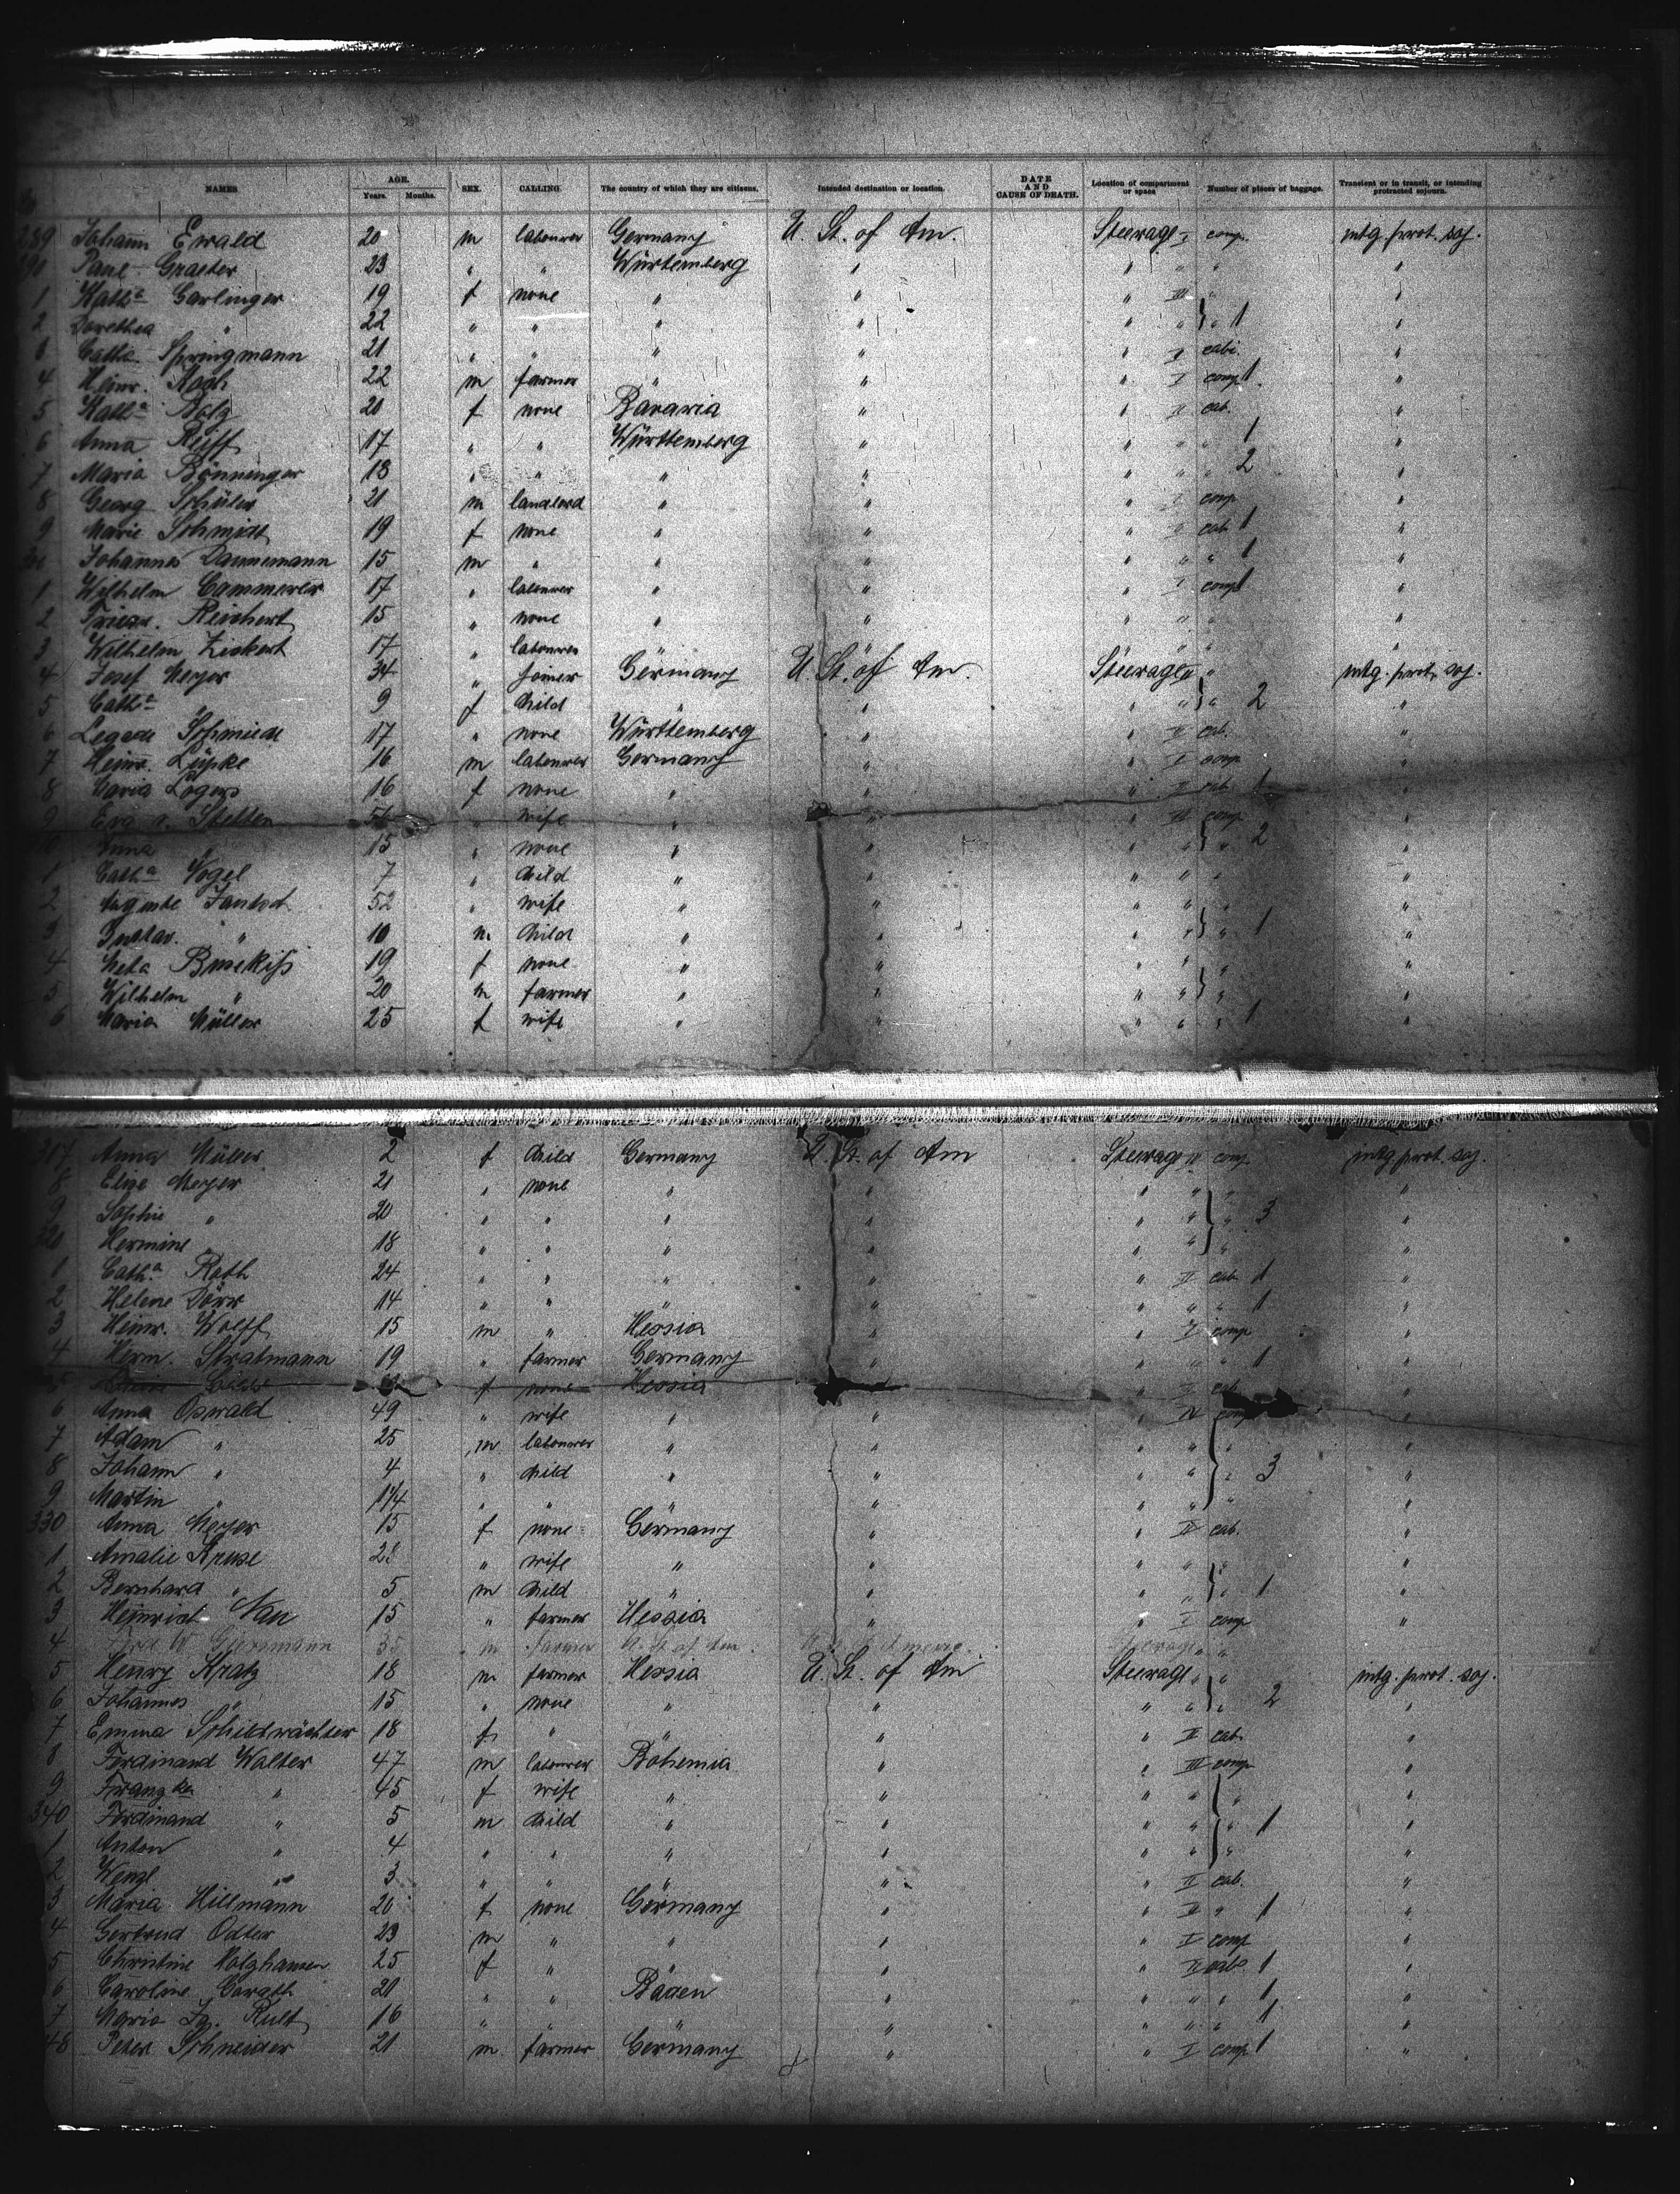 NAMES AGE. Years. Months. SEX. CALLING. The country of which they are citizens. Intended destination or location. DATE AND CAUSE OF DEATH. Location of compartment or space Number of pieces of baggage. Transient or in transit, or intending protracted sojourn.
289 Johann Ewald 20 m labourer Germany U. St. of Am. Steerage I comp. intg. prot. soj.
290 Paul Graeter 23 " " Württemberg " " " " "
1 Kath.a Garlinger 19 f none " " " III " "
2 Dorothea " 22 " " " " " " " 1 "
Catha Springmann 21 " " " " " cab. "
4 Heinr. Koch 22 m farmer " " " I comp 1 "
5 Kath.a Bolz 20 f none Bavaria " " II cab. "
6 Anna Reiff 17 " " Württemberg " " " " 1 "
7 Maria Bönninger 18 " " " " " " " 2 "
8 Georg Schüler 21 m landlord " " " I comp "
9 Marie Schmidt 19 f none " " " II cab 1 "
Johannes Dannemann 15 m " " " " " " 1 "
1 Wilhelm Cammerer 17 " labourer " " " I comp 1 "
2 Friedr. Reichert 15 " none " " " " " "
3 Wilhelm Zickert 17 " labourer " " " " " "
4 Josef Meyer 34 " joiner Germany U. St. of Am. Steerage " intg. prot. soj.
5 Cath.a " 9 f child " " " " " 2 "
6 Schmied 17 " none Württemberg " " II cab. "
7 Heinr. Lüpke 16 m labourer Germany " " I comp "
8 Maria Lögers 16 f none " " " II cab. 1 "
9 Eva v. Stetten wife " " " comp "
10 Anna " 15 " none " " " " " 2 "
1 Cath.a Vogel 7 " child " " " " " "
2 Auguste 52 " wife " " " " " "
3 Gustav " 10 m child " " " " " 1 "
4 Meta 19 f none " " " " " "
5 Wilhelm " 20 m farmer " " " " " "
6 Maria Müller 25 f wife " " " " " 1 "
317 Anna Müller 2 f child Germany U. St. of Am Steerage IV comp intg. prot. soj.
8 Elise Meyer 21 " none " " " " " "
9 Sophie " 20 " " " " " " " 3 "
320 Hermine " 18 " " " " " " " "
1 Cath.a Roth 24 " " " " " II cab 1 "
2 Helene Dörr 14 " " " " " " " 1 "
3 Heinr. Wolff 15 m " Hessia " " I comp "
4 Herm. Stratmann 19 " farmer Germany " " " " 1 "
5 f none Hessia " " II cab "
6 Anna Oswald 49 " wife " " " IV comp "
7 Adam " 25 m labourer " " " " " "
8 Johann " 4 " child " " " " " 3 "
9 Martin " 1 1/4 " " " " " " " "
330 Anna Meyer 15 f none Germany " " II cab. "
1 Amalie Kruse 28 " wife " " " " " "
2 Bernhard " 5 m child " " " " " 1 "
3 Heinrich Nau 15 " farmer Hessia " " I comp "
4 35 m farmer U. St. of Am Steerage " "
5 Henry Kratz 18 m farmer Hessia U. St. of Am Steerage " " intg. prot. soj.
6 Johannes " 15 " none " " " " " 2 "
7 Emma Schildwächter 18 f " " " " II cab. "
8 Ferdinand Walter 47 m labourer Bohemia " " III comp "
9 Franzka " 45 f wife " " " " " "
340 Ferdinand " 5 m child " " " " " 1 "
1 Anton " 4 " " " " " " " "
2 Wenzl " 3 " " " " " II cab. "
3 Maria Hillmann 20 f none Germany " " II " 1 "
4 Gertrud Odter 23 m " " " " I comp "
5 Christine Holzhausen 25 f " " " " II cab. 1 "
6 Caroline 21 " " Baden " " " " 1 "
7 Maria Rult 16 " " " " " " " 1 "
48 Peter Schneider 21 m farmer Germany " " I comp 1 "